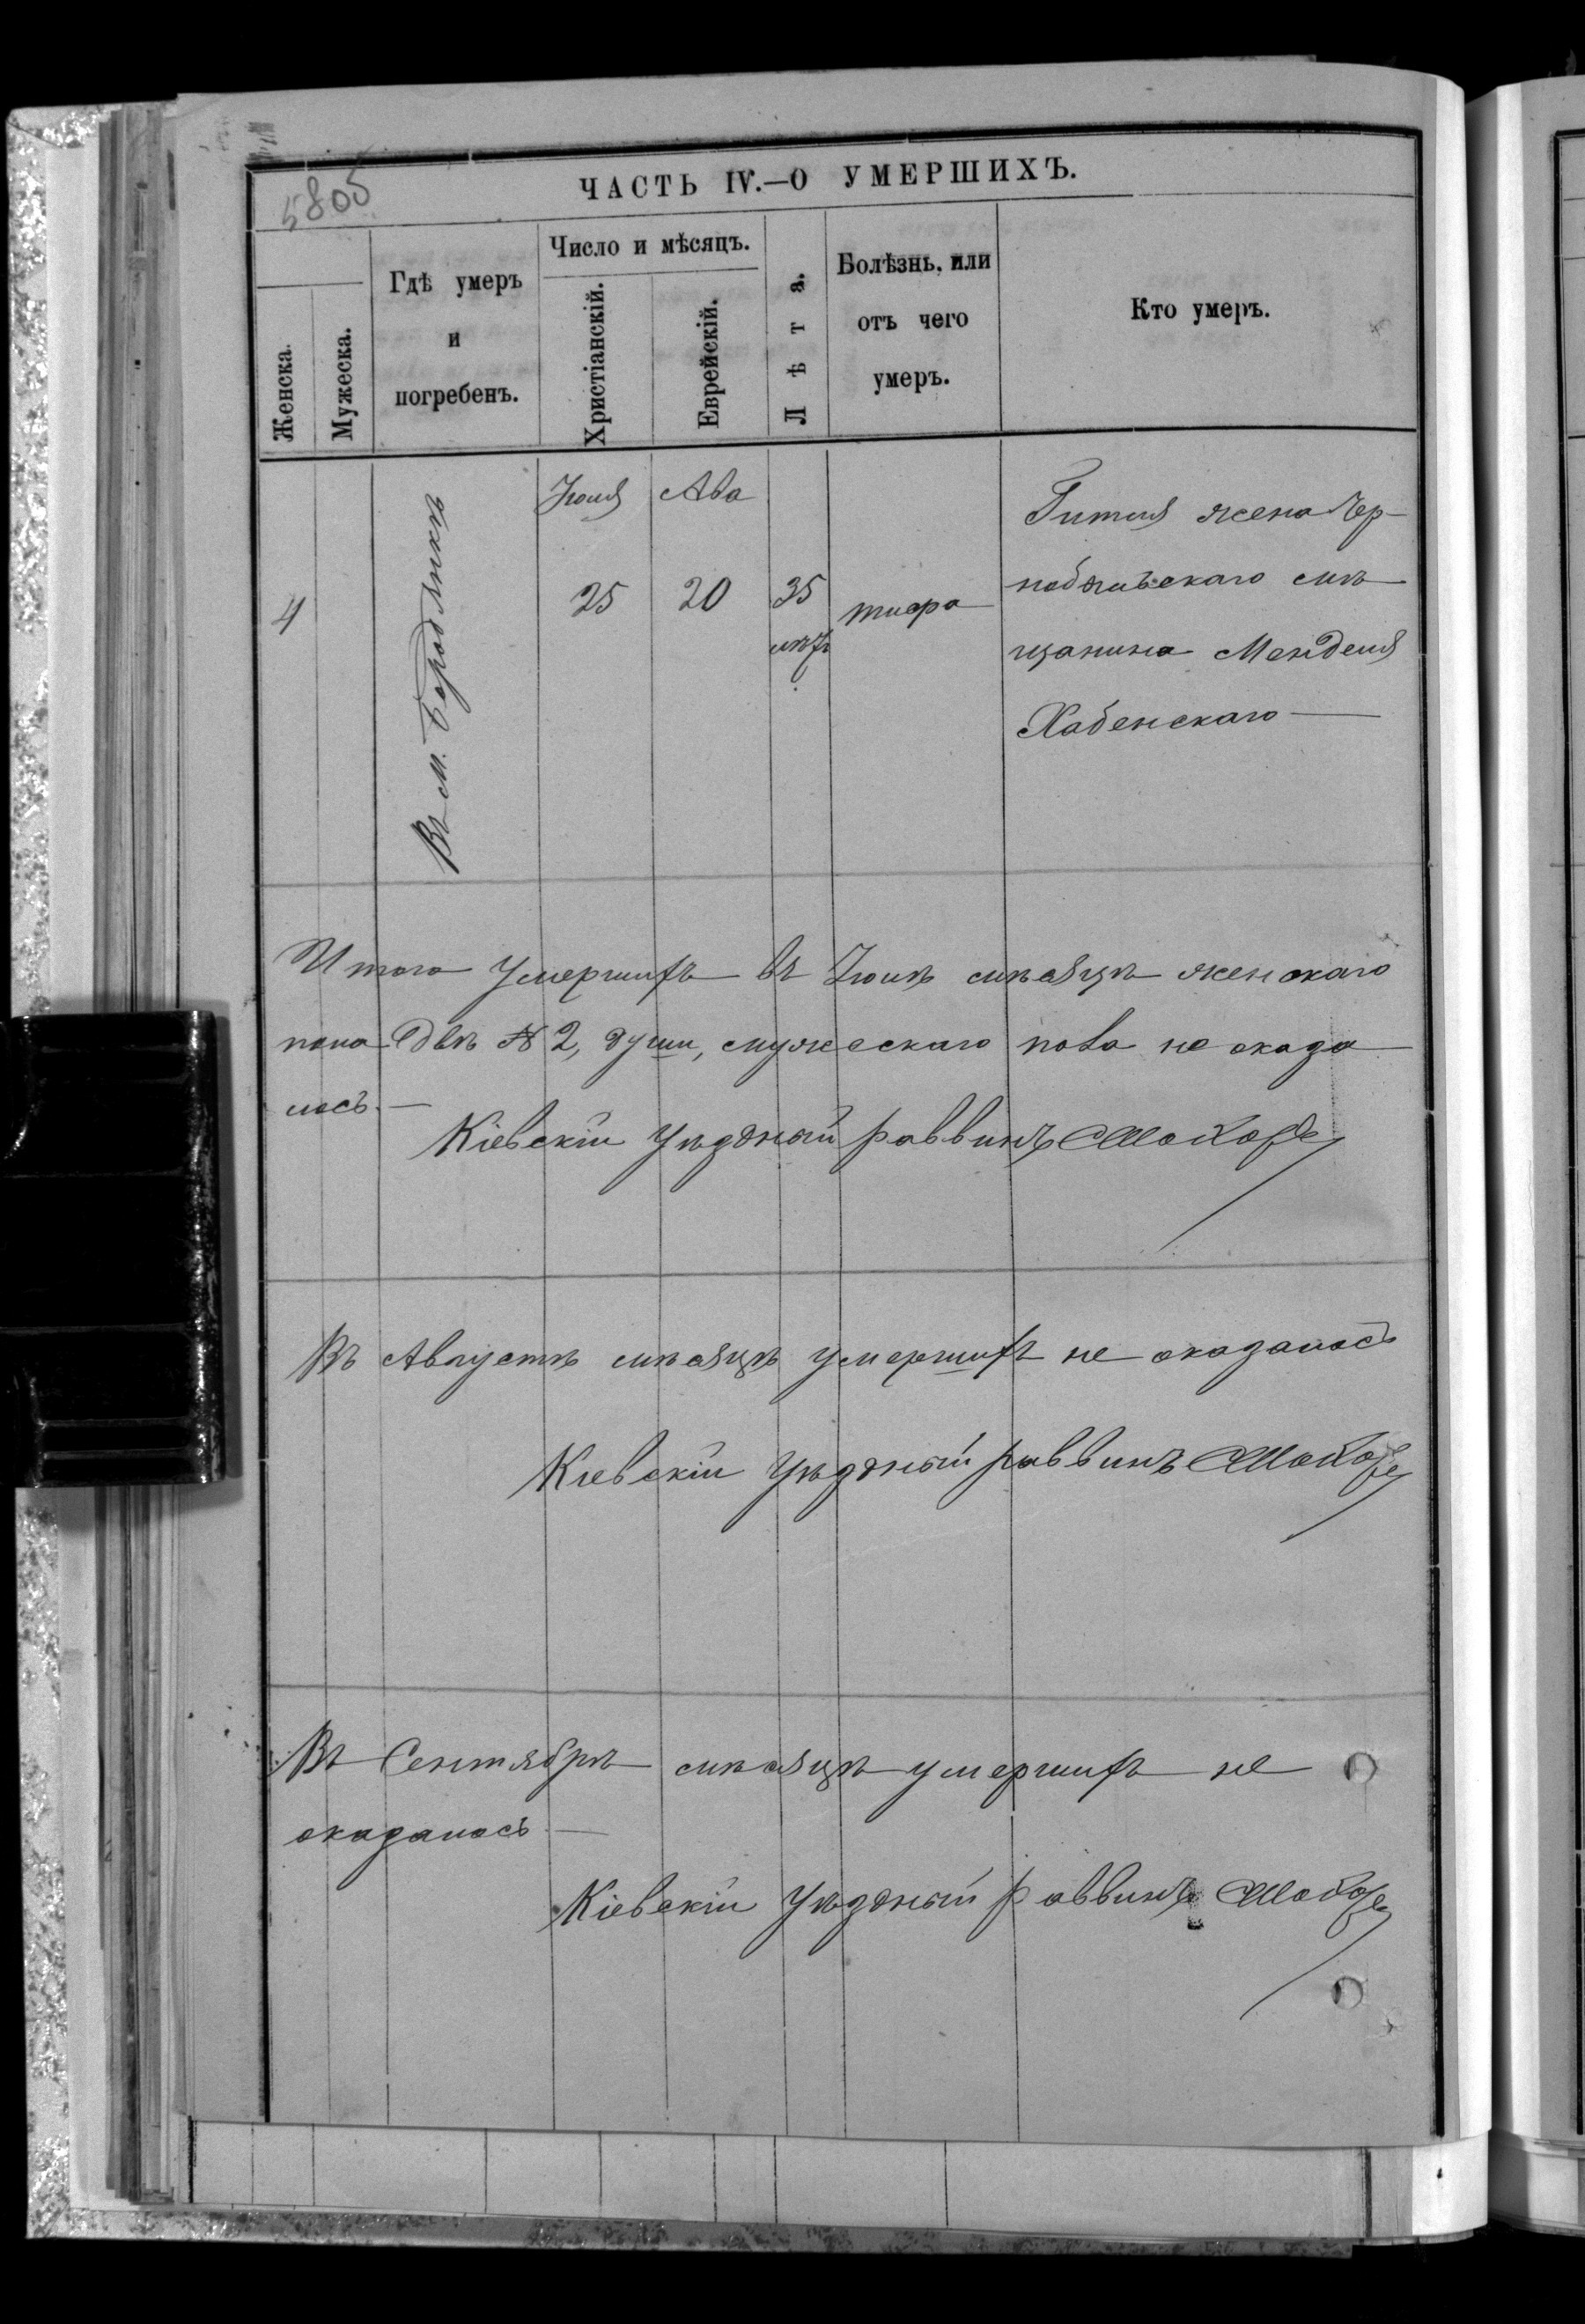 5805
ЧАСТЬ IV.—О УМЕРШИХЪ.
Женска.
Мужеска.
Гдѣ умеръ
и
погребенъ.
Число и мѣсяцъ.
Христіанскій.
Еврейскій.
Лѣта.
Болѣзнь, или
отъ чего
умеръ.
Кто умеръ.
4
Въ м. Бородянкѣ
Іюля
25
Ава
20
35
лѣтъ
тифа
Гитля жена Чер-
нобыльскаго мѣ
щанина Менделя
Хабенскаго —
Итого умершихъ въ Іюлѣ мѣсяцѣ женскаго
пола двѣ № 2, души, мужескаго пола не оказа
лось. —
Кіевскій Уѣздный раввинъ
Въ Августѣ мѣсяцѣ умершихъ не оказалось
Кіевскій Уѣздный раввинъ
Въ Сентябрѣ мѣсяцѣ умершихъ не
оказалось —
Кіевскій Уѣздный раввинъ